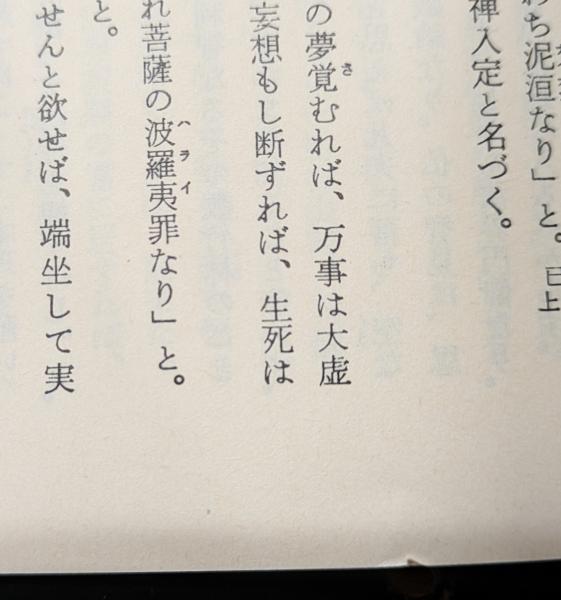 ち泥洹なり」と。已上
禅入定と名づく。
の夢覚むれば、万事は大虚
妄想もし断ずれば、生死は
れ菩薩の波羅夷罪なり」と。
と。
せんと欲せば、端坐して実